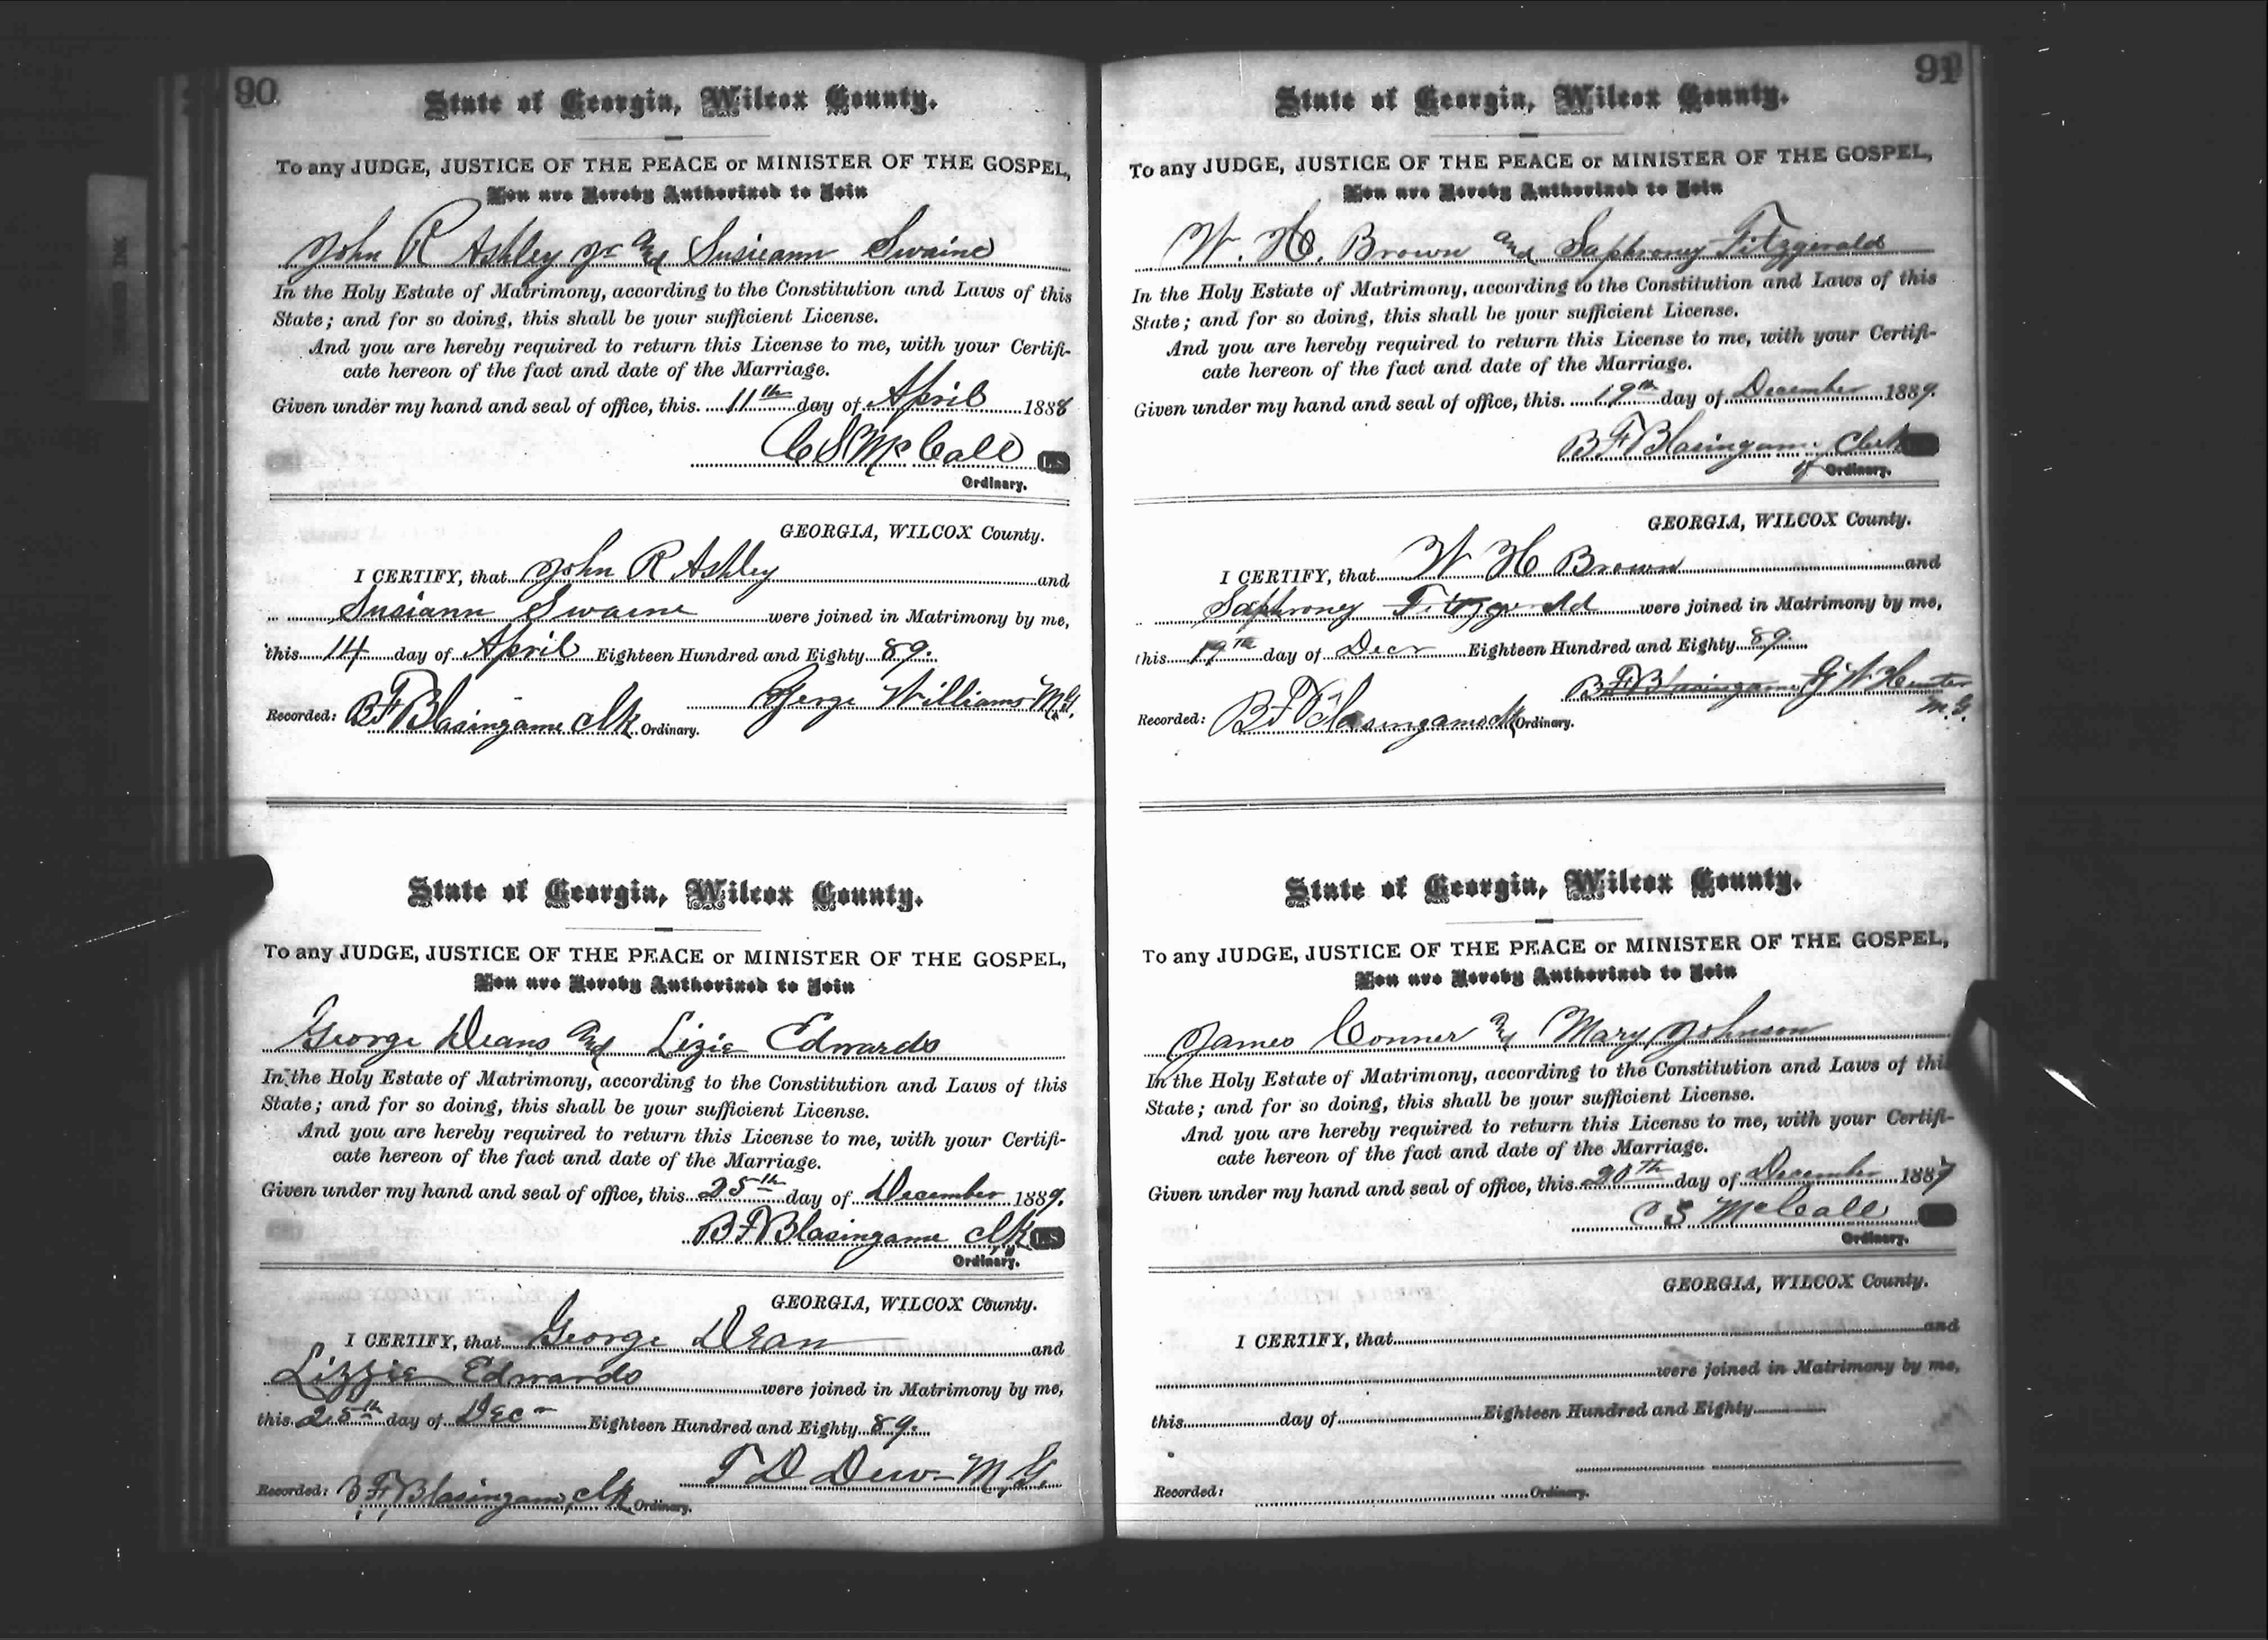 90
State of Georgia, Wilcox County.
To any JUDGE, JUSTICE OF THE PEACE or MINISTER OF THE GOSPEL,
You are Hereby Authorized to Join
John R Ashley Jr and Susieann Swaine
In the Holy Estate of Matrimony, according to the Constitution and Laws of this
State; and for so doing, this shall be your sufficient License.
And you are hereby required to return this License to me, with your Certifi-
cate hereon of the fact and date of the Marriage.
Given under my hand and seal of office, this 11th day of April 1888
C S McCall L.S.
Ordinary.
GEORGIA, WILCOX County.
I CERTIFY, that John R Ashley and
Susiann Swaine were joined in Matrimony by me,
this 14 day of April Eighteen Hundred and Eighty 89.
George Williams M.G.
Recorded: B F Blasingame Clk Ordinary.
State of Georgia, Wilcox County.
To any JUDGE, JUSTICE OF THE PEACE or MINISTER OF THE GOSPEL,
You are Hereby Authorized to Join
George Deans and Lizie Edwards
In the Holy Estate of Matrimony, according to the Constitution and Laws of this
State; and for so doing, this shall be your sufficient License.
And you are hereby required to return this License to me, with your Certifi-
cate hereon of the fact and date of the Marriage.
Given under my hand and seal of office, this 25th day of December 1889.
B F Blasingame Clk L.S.
Ordinary.
GEORGIA, WILCOX County.
I CERTIFY, that George Dean and
Lizzie Edwards were joined in Matrimony by me,
this 25th day of Decr Eighteen Hundred and Eighty 89.
T D Dew M.G.
Recorded: B F Blasingame, Clk Ordinary.
91
State of Georgia, Wilcox County.
To any JUDGE, JUSTICE OF THE PEACE or MINISTER OF THE GOSPEL,
You are Hereby Authorized to Join
W. H. Brown and Saphroney Fitzgerald
In the Holy Estate of Matrimony, according to the Constitution and Laws of this
State; and for so doing, this shall be your sufficient License.
And you are hereby required to return this License to me, with your Certifi-
cate hereon of the fact and date of the Marriage.
Given under my hand and seal of office, this 19th day of December 1889.
B F Blasingame Clerk
of Ordinary.
GEORGIA, WILCOX County.
I CERTIFY, that W H Brown and
Saphroney Fitzgerald were joined in Matrimony by me,
this 19th day of Decr Eighteen Hundred and Eighty 89.
B F Blasingame G W Hunter
M.G.
Recorded: B F Blasingame Clk Ordinary.
State of Georgia, Wilcox County.
To any JUDGE, JUSTICE OF THE PEACE or MINISTER OF THE GOSPEL,
You are Hereby Authorized to Join
James Conner and Mary Johnson
In the Holy Estate of Matrimony, according to the Constitution and Laws of this
State; and for so doing, this shall be your sufficient License.
And you are hereby required to return this License to me, with your Certifi-
cate hereon of the fact and date of the Marriage.
Given under my hand and seal of office, this 20th day of December 1887
C S McCall
Ordinary.
GEORGIA, WILCOX County.
I CERTIFY, that and
were joined in Matrimony by me,
this day of Eighteen Hundred and Eighty
Recorded: Ordinary.